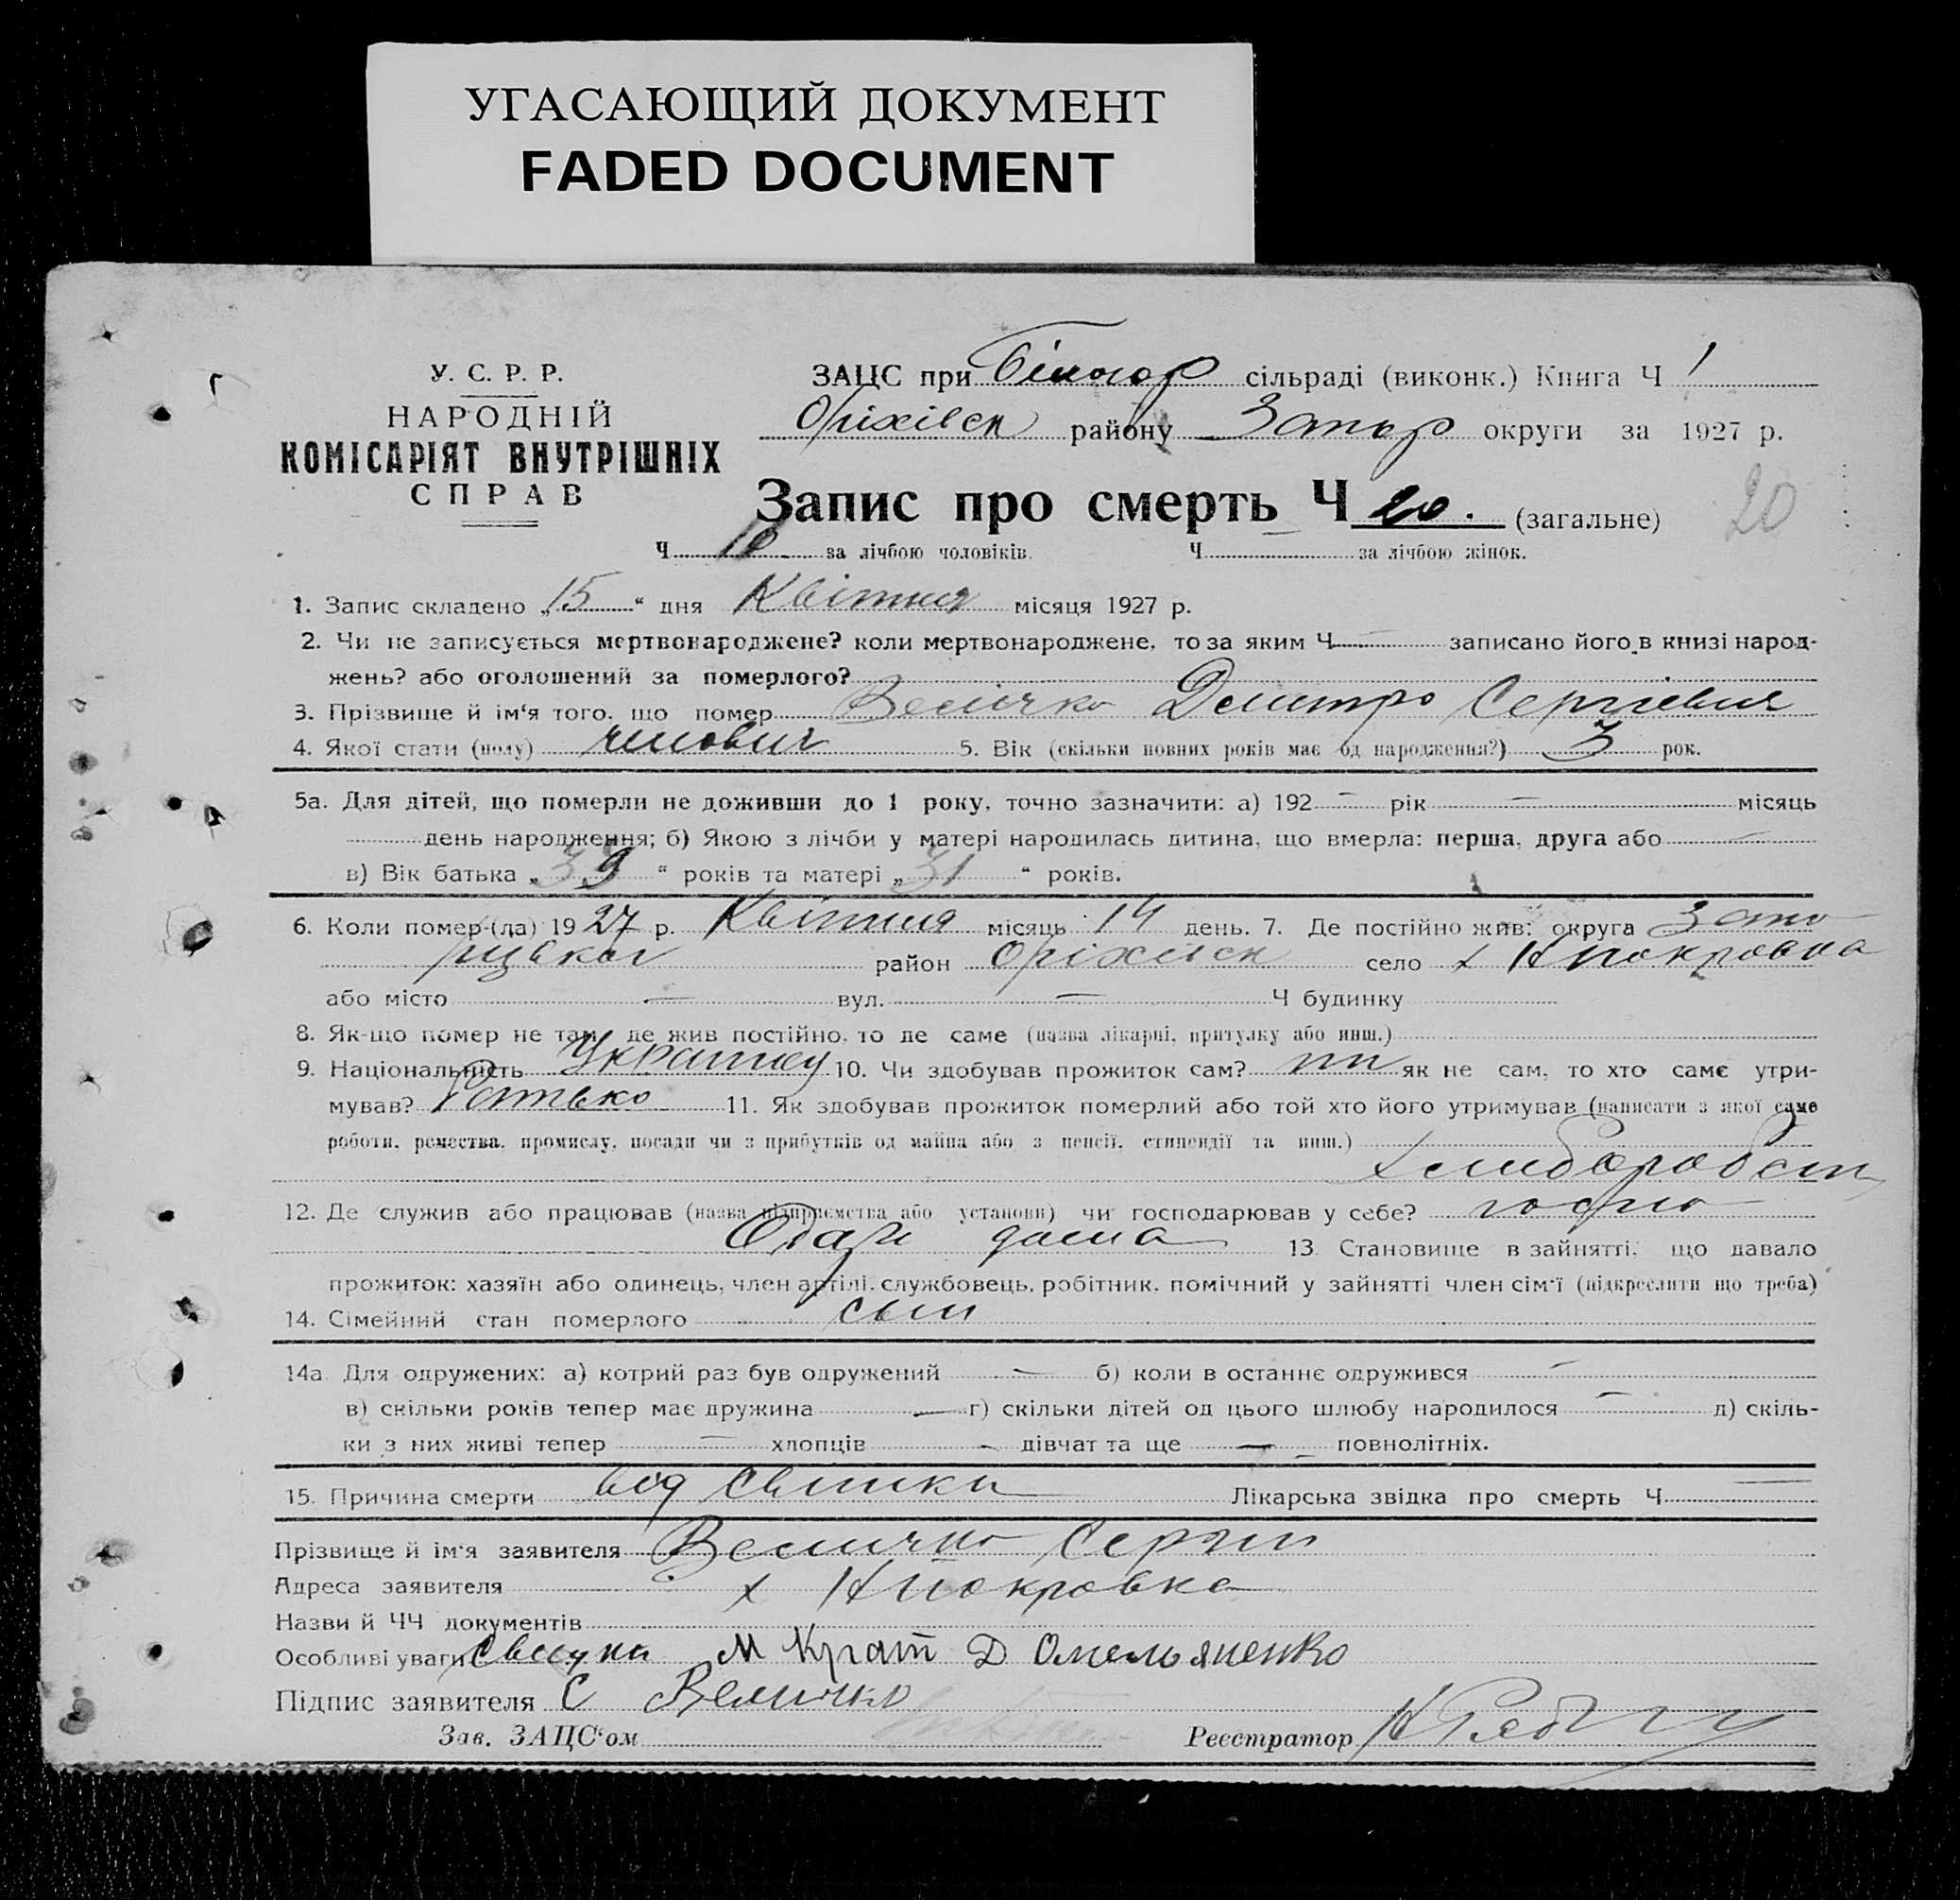 УГАСАЮЩИЙ ДОКУМЕНТ
FADED DOCUMENT
У. С. Р. Р.
НАРОДНІЙ
КОМІСАРІЯТ ВНУТРІШНІХ
СПРАВ
ЗАЦС при Білогор сільраді (виконк.) Книга Ч 1
Оріхівск району Запор округи за 1927 р.
Запис про смерть Ч 20. (загальне) 20
Ч 10 за лічбою чоловіків. Ч за лічбою жінок.
1. Запис складено „15“ дня Квітня місяця 1927 р.
2. Чи не записується мертвонароджене? коли мертвонароджене, то за яким Ч — записано його в книзі народ-
жень? або оголошений за померлого?
3. Прізвище й ім‘я того, що помер Величко Дмитро Сергієвич
4. Якої стати (полу) чолович 5. Вік (скільки повних років має од народження?) 3 рок.
5а. Для дітей, що померли не доживши до 1 року, точно зазначити: а) 192 — рік — місяць
день народження; б) Якою з лічби у матері народилась дитина, що вмерла: перша, друга або —
в) Вік батька „39“ років та матері „31“ років.
6. Коли помер-(ла) 1927 р. Квітня місяць 14 день. 7. Де постійно жив: округа Запо
ріцької район Оріхівск село х Н покровка
або місто — вул. — Ч будинку
8. Як-що помер не там, де жив постійно, то де саме (назва лікарні, притулку або инш.)
9. Національність Украінец 10. Чи здобував прожиток сам? ні як не сам, то хто саме утри-
мував? Батько 11. Як здобував прожиток померлий або той хто його утримував (написати з якої саме
роботи, ремества, промислу, посади чи з прибутків од майна або з пенсії, стипендії та инш.)
12. Де служив або працював (назва підприємства або установи) чи господарював у себе? госпо
дарі дома 13. Становище в зайнятті, що давало
прожиток: хазяїн або одинець, член артілі, службовець, робітник, помічний у зайнятті член сім‘ї (підкреслити що треба)
14. Сімейний стан померлого сын
14а. Для одружених: а) котрий раз був одружений — б) коли в останнє одружився —
в) скільки років тепер має дружина — г) скільки дітей од цього шлюбу народилося — д) скіль-
ки з них живі тепер — хлопців - дівчат та ще — повнолітніх.
15. Причина смерти від свинки Лікарська звідка про смерть Ч —
Прізвище й ім‘я заявителя Величко Сергій
Адреса заявителя х Н покровка
Назви й ЧЧ документів
Особливі уваги М Крат Д Омельяненко
Підпис заявителя С Величко
Зав. ЗАЦС‘ом Реєстратор